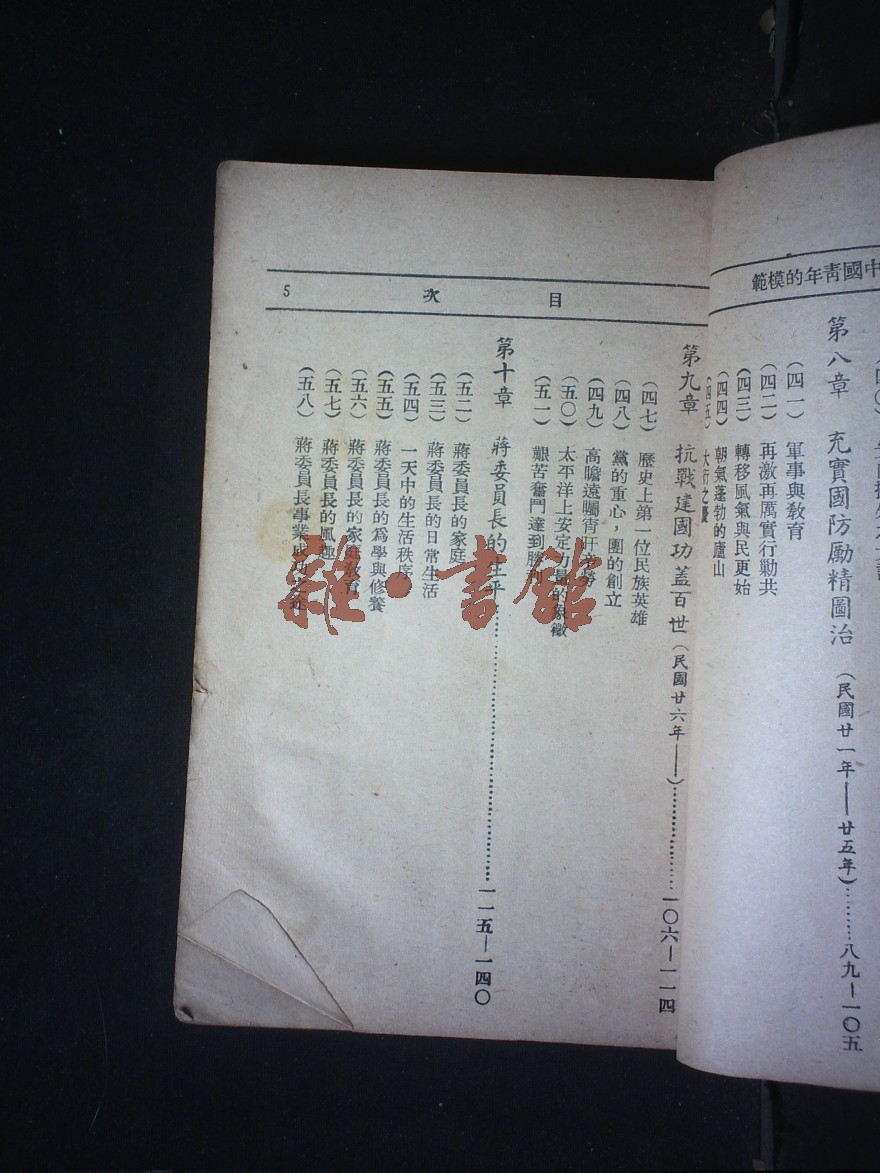 中國靑年的模範
第八章 充實國防勵精圖治(民國廿一年——廿五年)………八九—一〇五
(四一) 軍事與敎育
(四二) 再激再厲實行勦共
(四三) 轉移風氣與民更始
(四四) 朝氣蓬勃的廬山
目 次 5
第九章 抗戰建國功蓋百世(民國廿六年——)………一〇六—一一四
(四七) 歷史上第一位民族英雄
(四八) 黨的重心,團的創立
(四九) 高瞻遠矚宵旰
(五〇) 太平洋上安定力量的象徵
(五一) 艱苦奮鬥達到勝利
第十章 蔣委員長的生平………一一五—一四〇
(五二) 蔣委員長的家庭
(五三) 蔣委員長的日常生活
(五四) 一天中的生活秩序
(五五) 蔣委員長的爲學與修養
(五六) 蔣委員長的家庭敎育
(五七) 蔣委員長的風趣
(五八) 蔣委員長事業成功之途
雜·書館